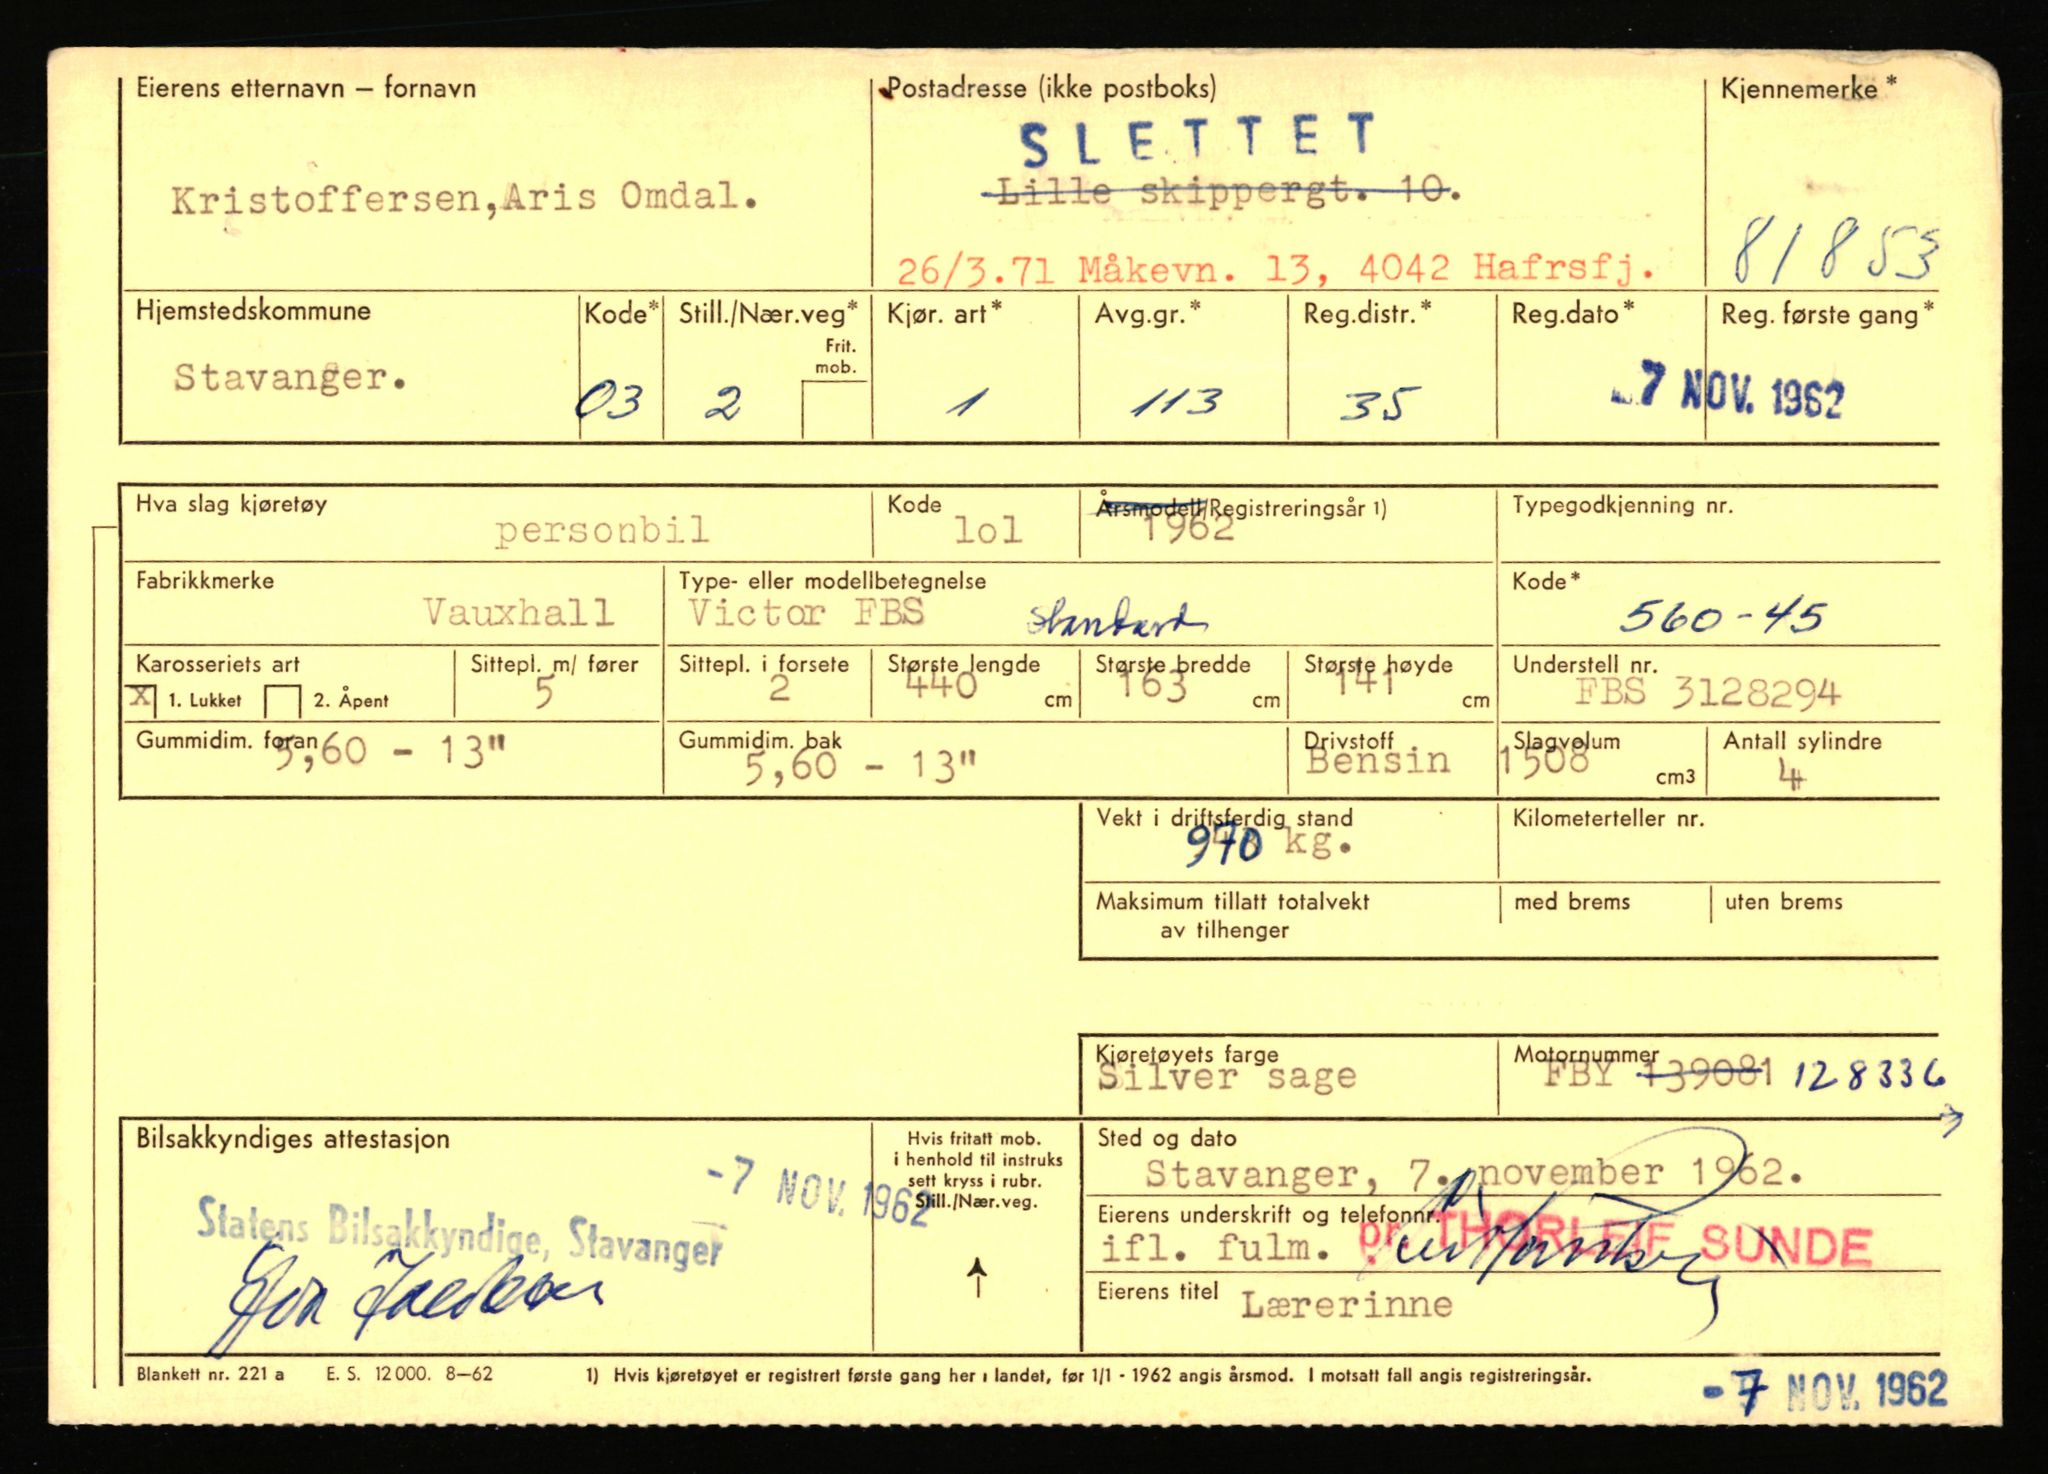 Eierens etternavn – fornavn
Postadresse (ikke postboks)
Kjennemerke *
SLETTET
Kristoffersen, Aris Omdal.
Lille skippergt. 10.
26/3.71 Måkevn. 13, 4042 Hafrsfj.
81853
Hjemstedskommune
Kode*
Still./Nær.veg*
Frit. mob.
Kjør. art*
Avg.gr.*
Reg.distr.*
Reg.dato*
Reg. første gang*
Stavanger.
03
2
1
113
35
-7 NOV. 1962
Hva slag kjøretøy
personbil
Kode
lol
Årsmodell/Registreringsår 1)
1962
Typegodkjenning nr.
Fabrikkmerke
Vauxhall
Type- eller modellbetegnelse
Victor FBS Standard
Kode*
560-45
Karosseriets art
X 1. Lukket
2. Åpent
Sittepl. m/ fører
5
Sittepl. i forsete
2
Største lengde
440 cm
Største bredde
163 cm
Største høyde
141 cm
Understell nr.
FBS 3128294
Gummidim. foran
5,60 - 13"
Gummidim. bak
5,60 - 13"
Drivstoff
Bensin
Slagvolum
1508 cm3
Antall sylindre
4
Vekt i driftsferdig stand
970 kg.
Kilometerteller nr.
Maksimum tillatt totalvekt
av tilhenger
med brems
uten brems
Kjøretøyets farge
Silver sage
Motornummer
FBY 139081 128336
Bilsakkyndiges attestasjon
-7 NOV. 1962
Statens Bilsakkyndige, Stavanger
Hvis fritatt mob.
i henhold til instruks
sett kryss i rubr.
Still./Nær.veg.
Sted og dato
Stavanger, 7. november 1962.
Eierens underskrift og telefonnr.
ifl. fulm. pr. THORLEIF SUNDE
Eierens titel
Lærerinne
Blankett nr. 221 a E. S. 12 000. 8–62
1) Hvis kjøretøyet er registrert første gang her i landet, før 1/1 - 1962 angis årsmod. I motsatt fall angis registreringsår.
-7 NOV. 1962